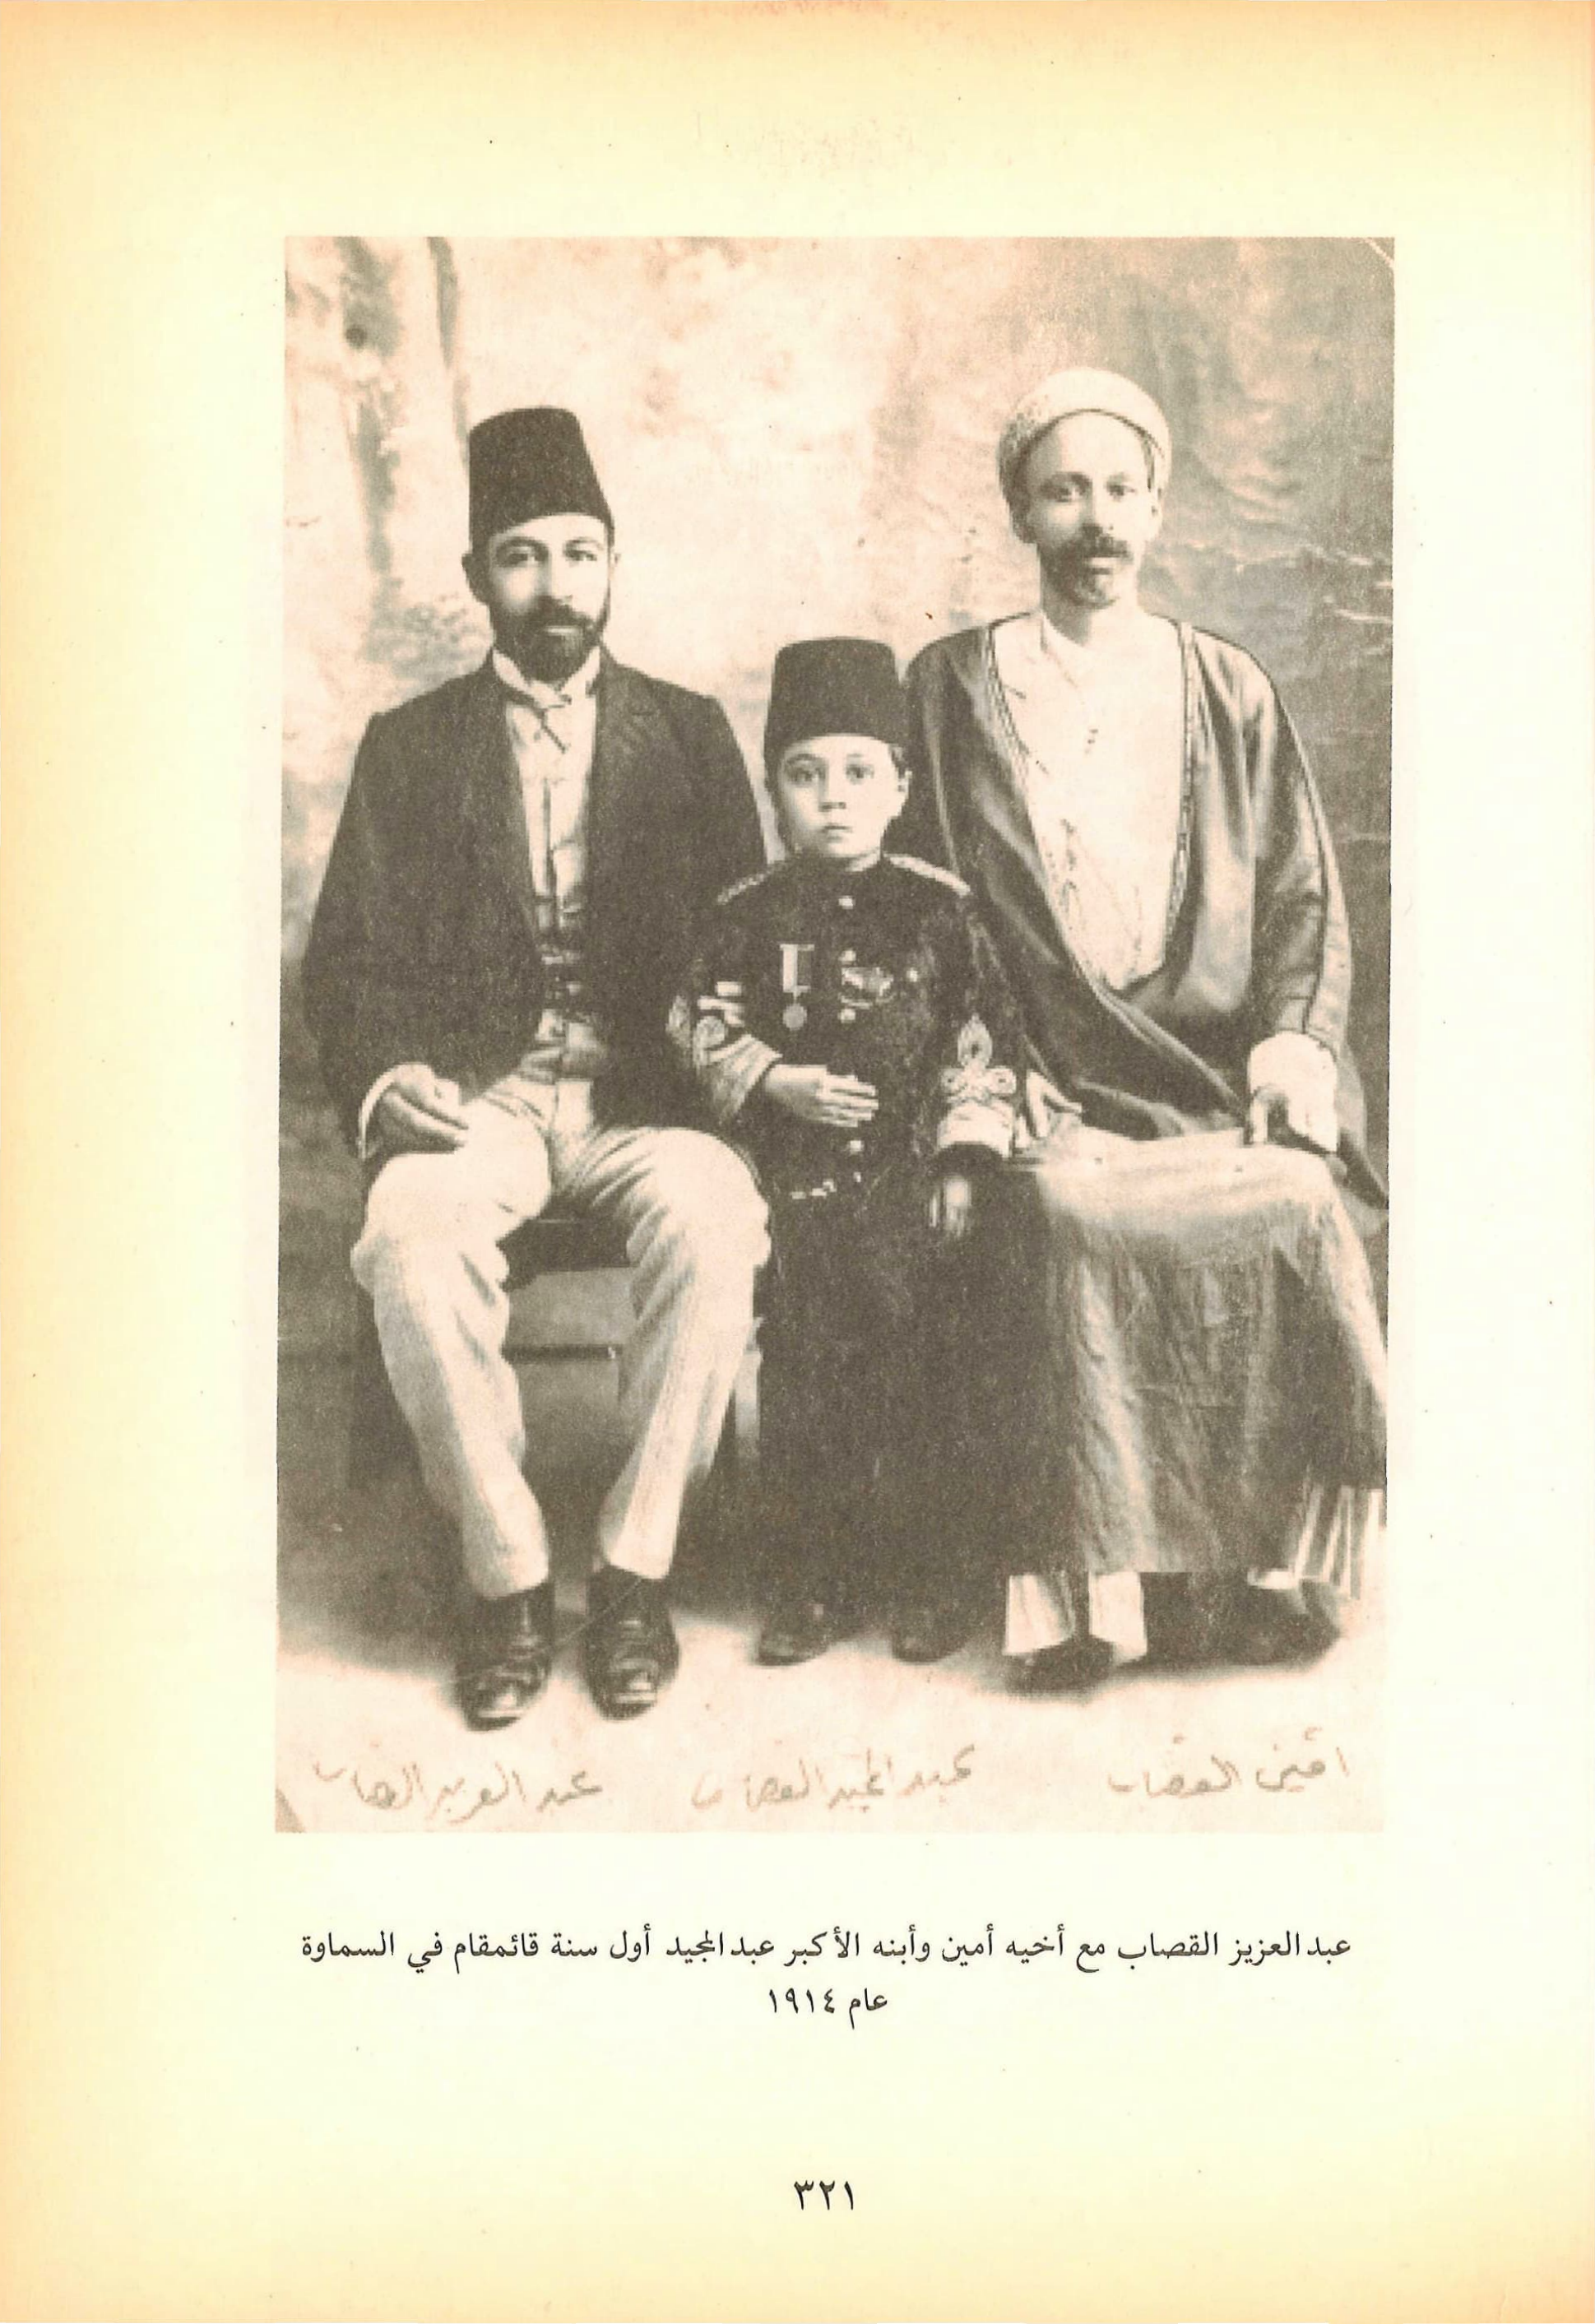 امين القصاب
عبد المجيد القصاب
عبد العزيز القصاب
عبد العزيز القصاب مع أخيه أمين وأبنه الأكبر عبد المجيد أول سنة قائمقام في السماوة
عام ١٩١٤
٣٢١